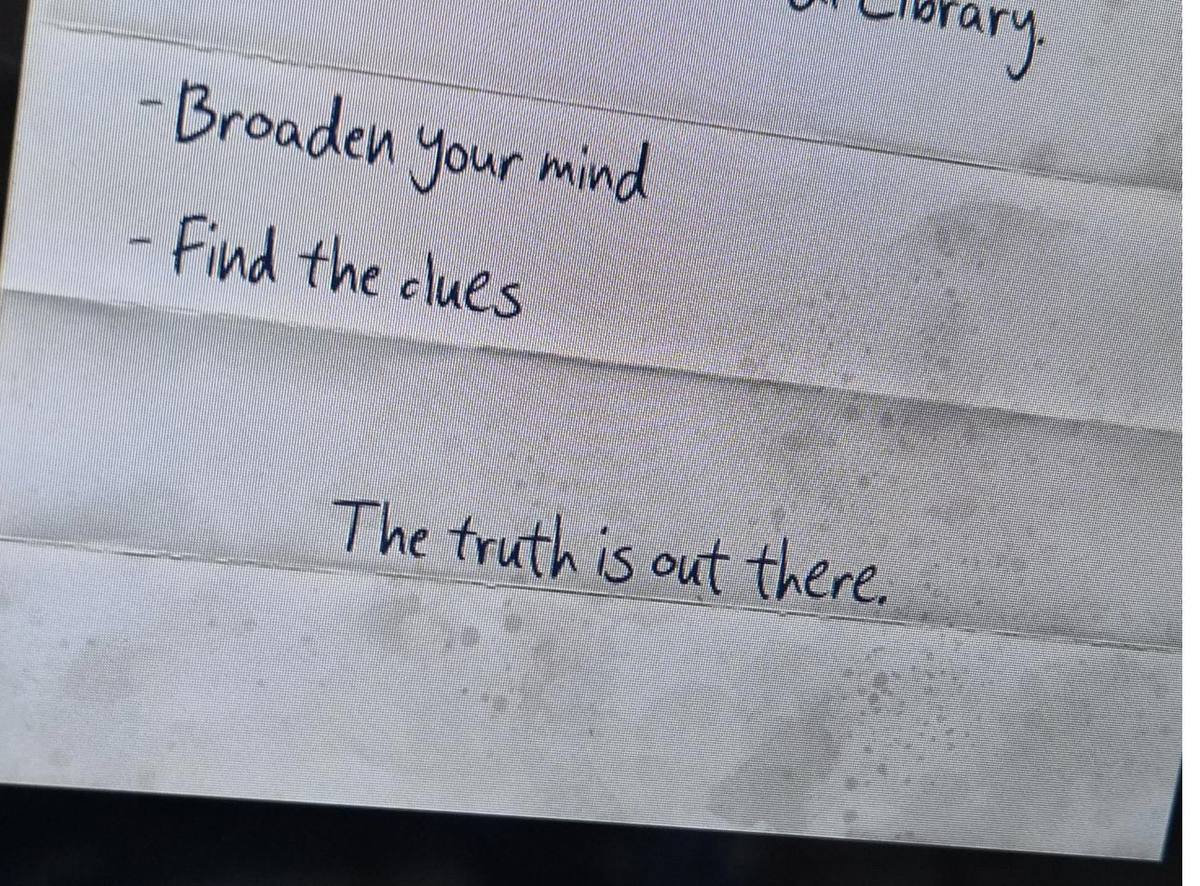 Library.
- Broaden your mind
- Find the clues
The truth is out there.